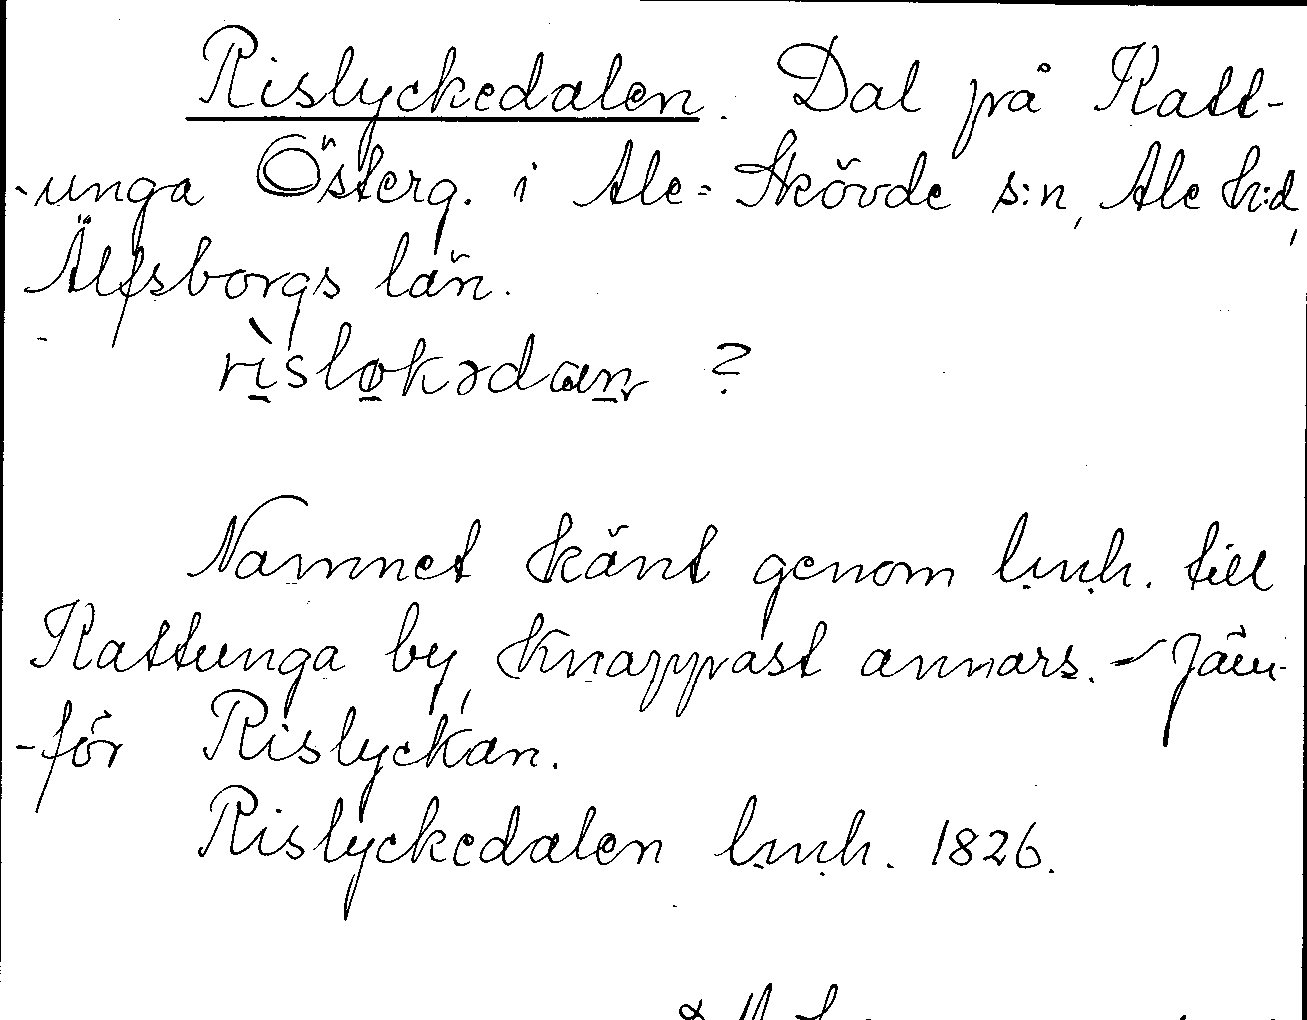 Rislyckedalen. Dal på Ratt-
-unga Österg. i Ale-Skövde s:n, Ale h:d,
Älfsborgs län.
rìsløkədaɳ ?
Namnet känt genom l.m.h. till
Rattunga by, knappast annars. - Jäm-
-för Rislyckan.
Rislyckedalen l.m.h. 1826.